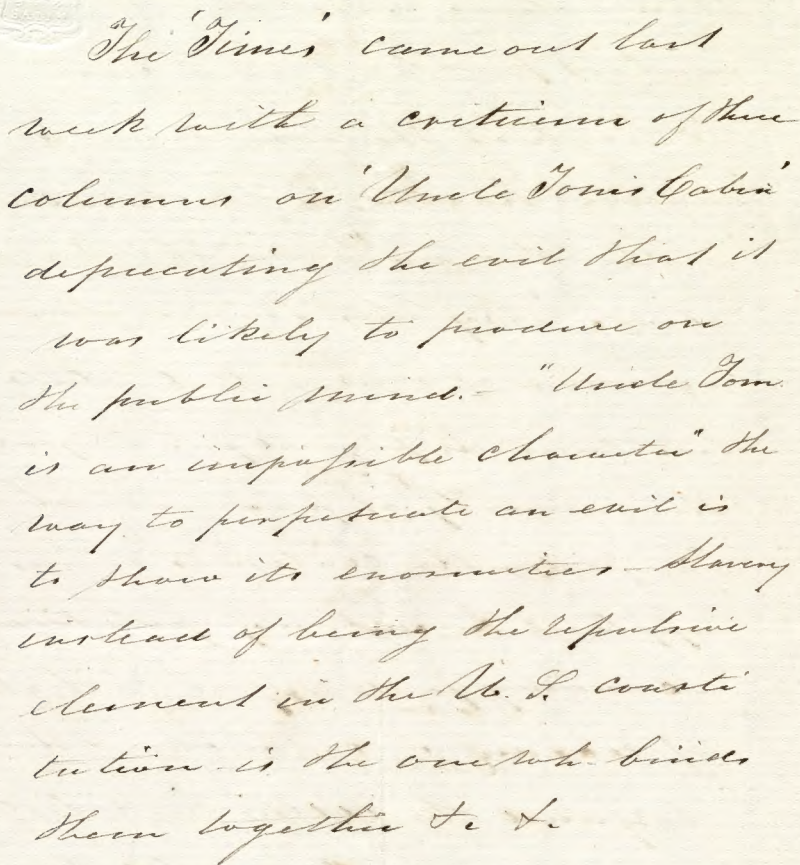 The 'Times' came out last
week with a criticism of three
columns on 'Uncle Tom's Cabin'
deprecating the evil that it
was likely to produce on
the public mind. - "Uncle Tom
is an impossible character" the
way to perpetuate an evil is
to show its enormities - Slavery
instead of being the repulsive
element in the U. S. consti
tution - is the one wh. binds
them together &c &c